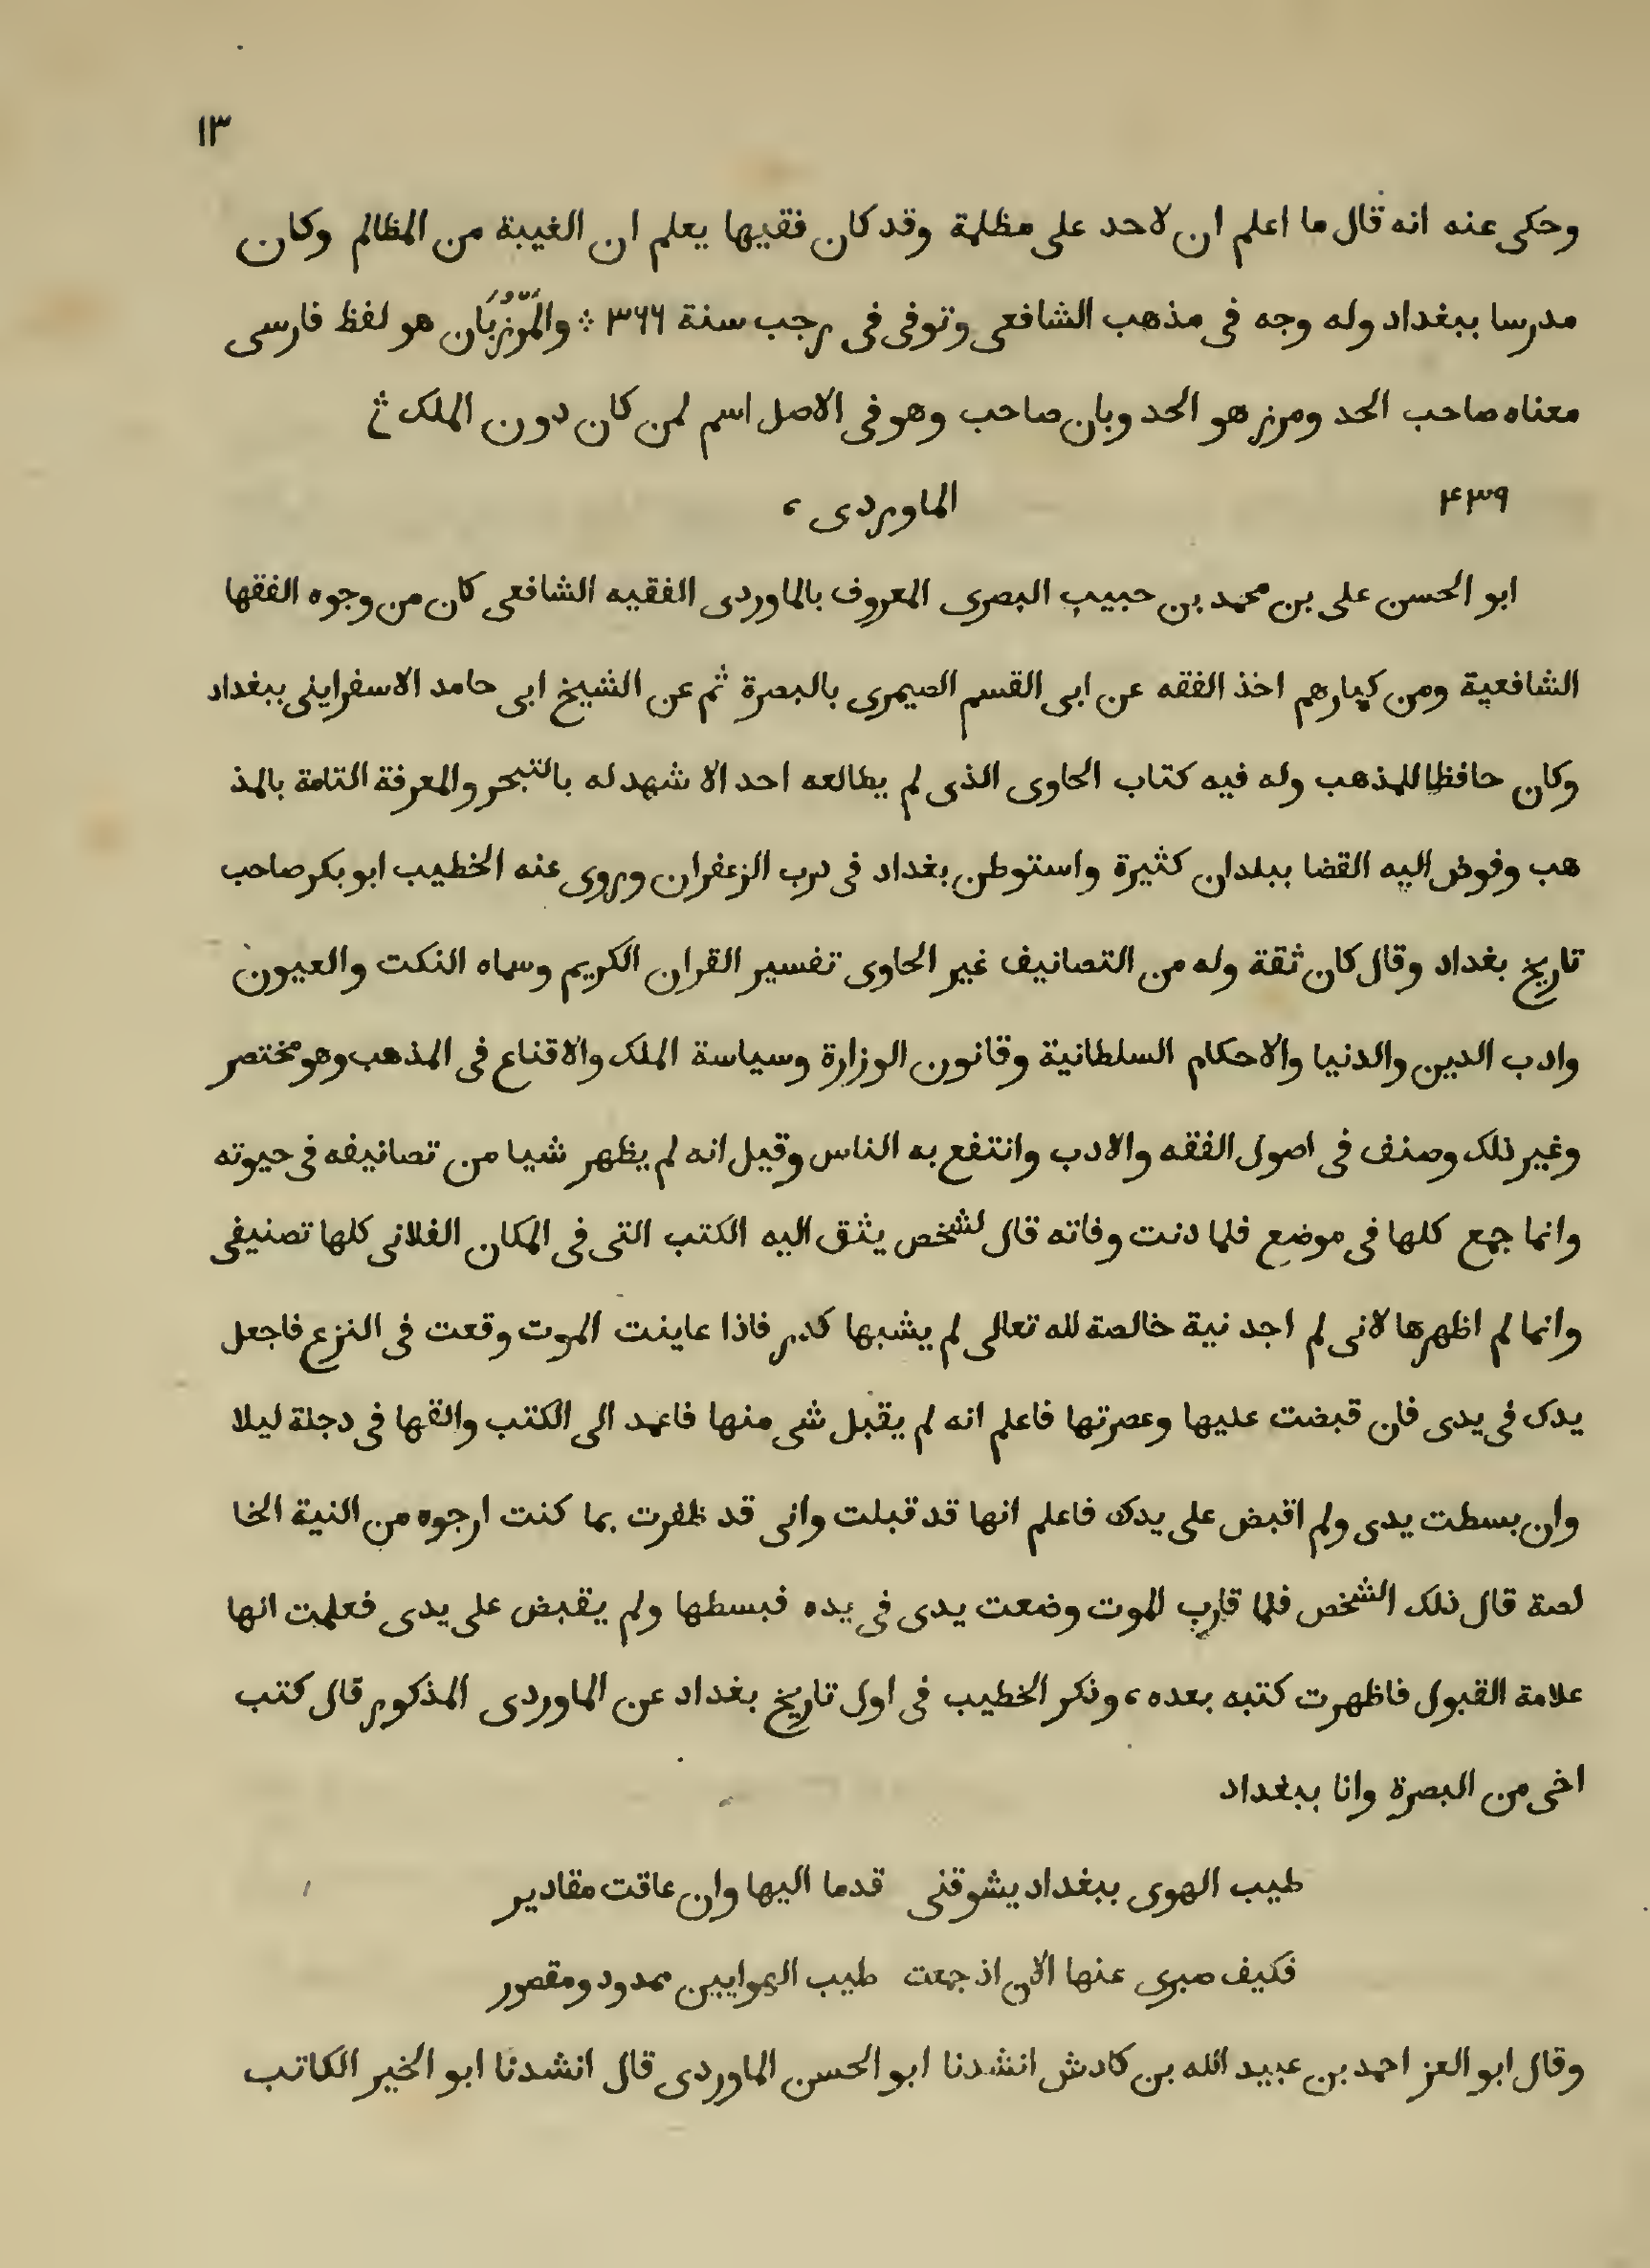 ١٣
وحكى عنه انه قال ما اعلم ان لاحد على مظلمة وقد كان فقيها يعلم ان الغيبة من المظالم وكان
مدرسا ببغداد وله وجه فى مذهب الشافعى وتوفى فى رجب سنة ٣٦٦ ؞ والمَرْزُبَان هو لفظ فارسى
معناه صاحب الحد ومرز هو الحد وبان صاحب وهو فى الاصل اسم لمن كان دون الملك
٤٣٩ الماوردى ،
ابو الحسن على بن محمد بن حبيب البصرى المعروف بالماوردى الفقيه الشافعى كان من وجوه الفقها
الشافعية ومن كبارهم اخذ الفقه عن ابى القسم الصيمرى بالبصرة ثم عن الشيخ ابى حامد الاسفراينى ببغداد
وكان حافظا للمذهب وله فيه كتاب الحاوى الذى لم يطالعه احد الا شهد له بالتبحر والمعرفة التامة بالمذ
هب وفوض اليه القضا ببلدان كثيرة واستوطن بغداد فى درب الزعفران وروى عنه الخطيب ابو بكر صاحب
تاريخ بغداد وقال كان ثقة وله من التصانيف غير الحاوى تفسير القران الكريم وسماه النكت والعيون
وادب الدين والدنيا والاحكام السلطانية وقانون الوزارة وسياسة الملك والاقناع فى المذهب وهو مختصر
وغير ذلك وصنف فى اصول الفقه والادب وانتفع به الناس وقيل انه لم يظهر شيا من تصانيفه فى حيوته
وانما جمع كلها فى موضع فلما دنت وفاته قال لشخص يثق اليه الكتب التى فى المكان الفلانى كلها تصنيفى
وانما لم اظهرها لانى لم اجد نية خالصة لله تعالى لم يشبها كدر فاذا عاينت الموت وقعت فى النزع فاجعل
يدك فى يدى فان قبضت عليها وعصرتها فاعلم انه لم يقبل شى منها فاعمد الى الكتب والقها فى دجلة ليلا
وان بسطت يدى ولم اقبض على يدك فاعلم انها قد قبلت وانى قد ظفرت بما كنت ارجوه من النية الخا
لصة قال ذلك الشخص فلما قارب الموت وضعت يدى فى يده فبسطها ولم يقبض على يدى فعلمت انها
علامة القبول فاظهرت كتبه بعده ، وذكر الخطيب فى اول تاريخ بغداد عن الماوردى المذكور قال كتب
اخى من البصرة وانا ببغداد
طيب الهوى ببغداد يشوقنى قدما اليها وان عاقت مقادير
فكيف صبرى عنها الان اذ جمعت طيب الهوايين ممدود ومقصور
وقال ابو العز احمد بن عبيد الله بن كادش انشدنا ابو الحسن الماوردى قال انشدنا ابو الخير الكاتب